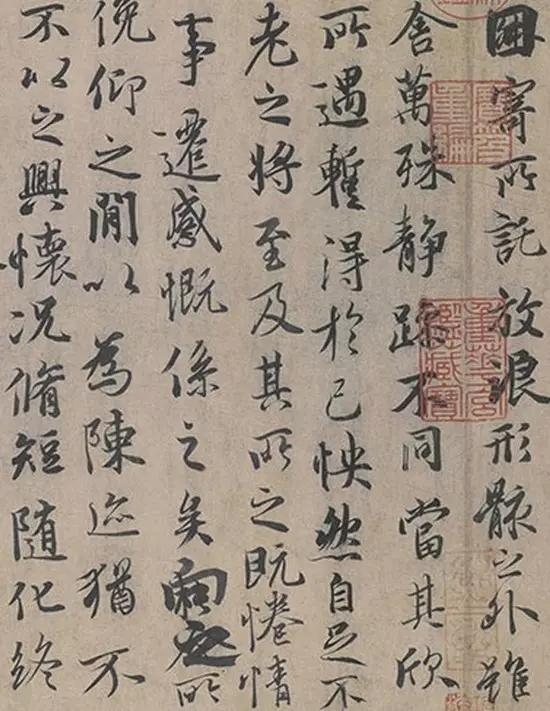 因寄所託放浪形骸之外雖
舍萬殊静躁不同當其欣
所遇暫得於己怏然自足不
老之將至及其所之既惓情
事遷感慨係之矣向之所
俛仰之閒以為陳迹猶不
不以之興懷况脩短隨化終